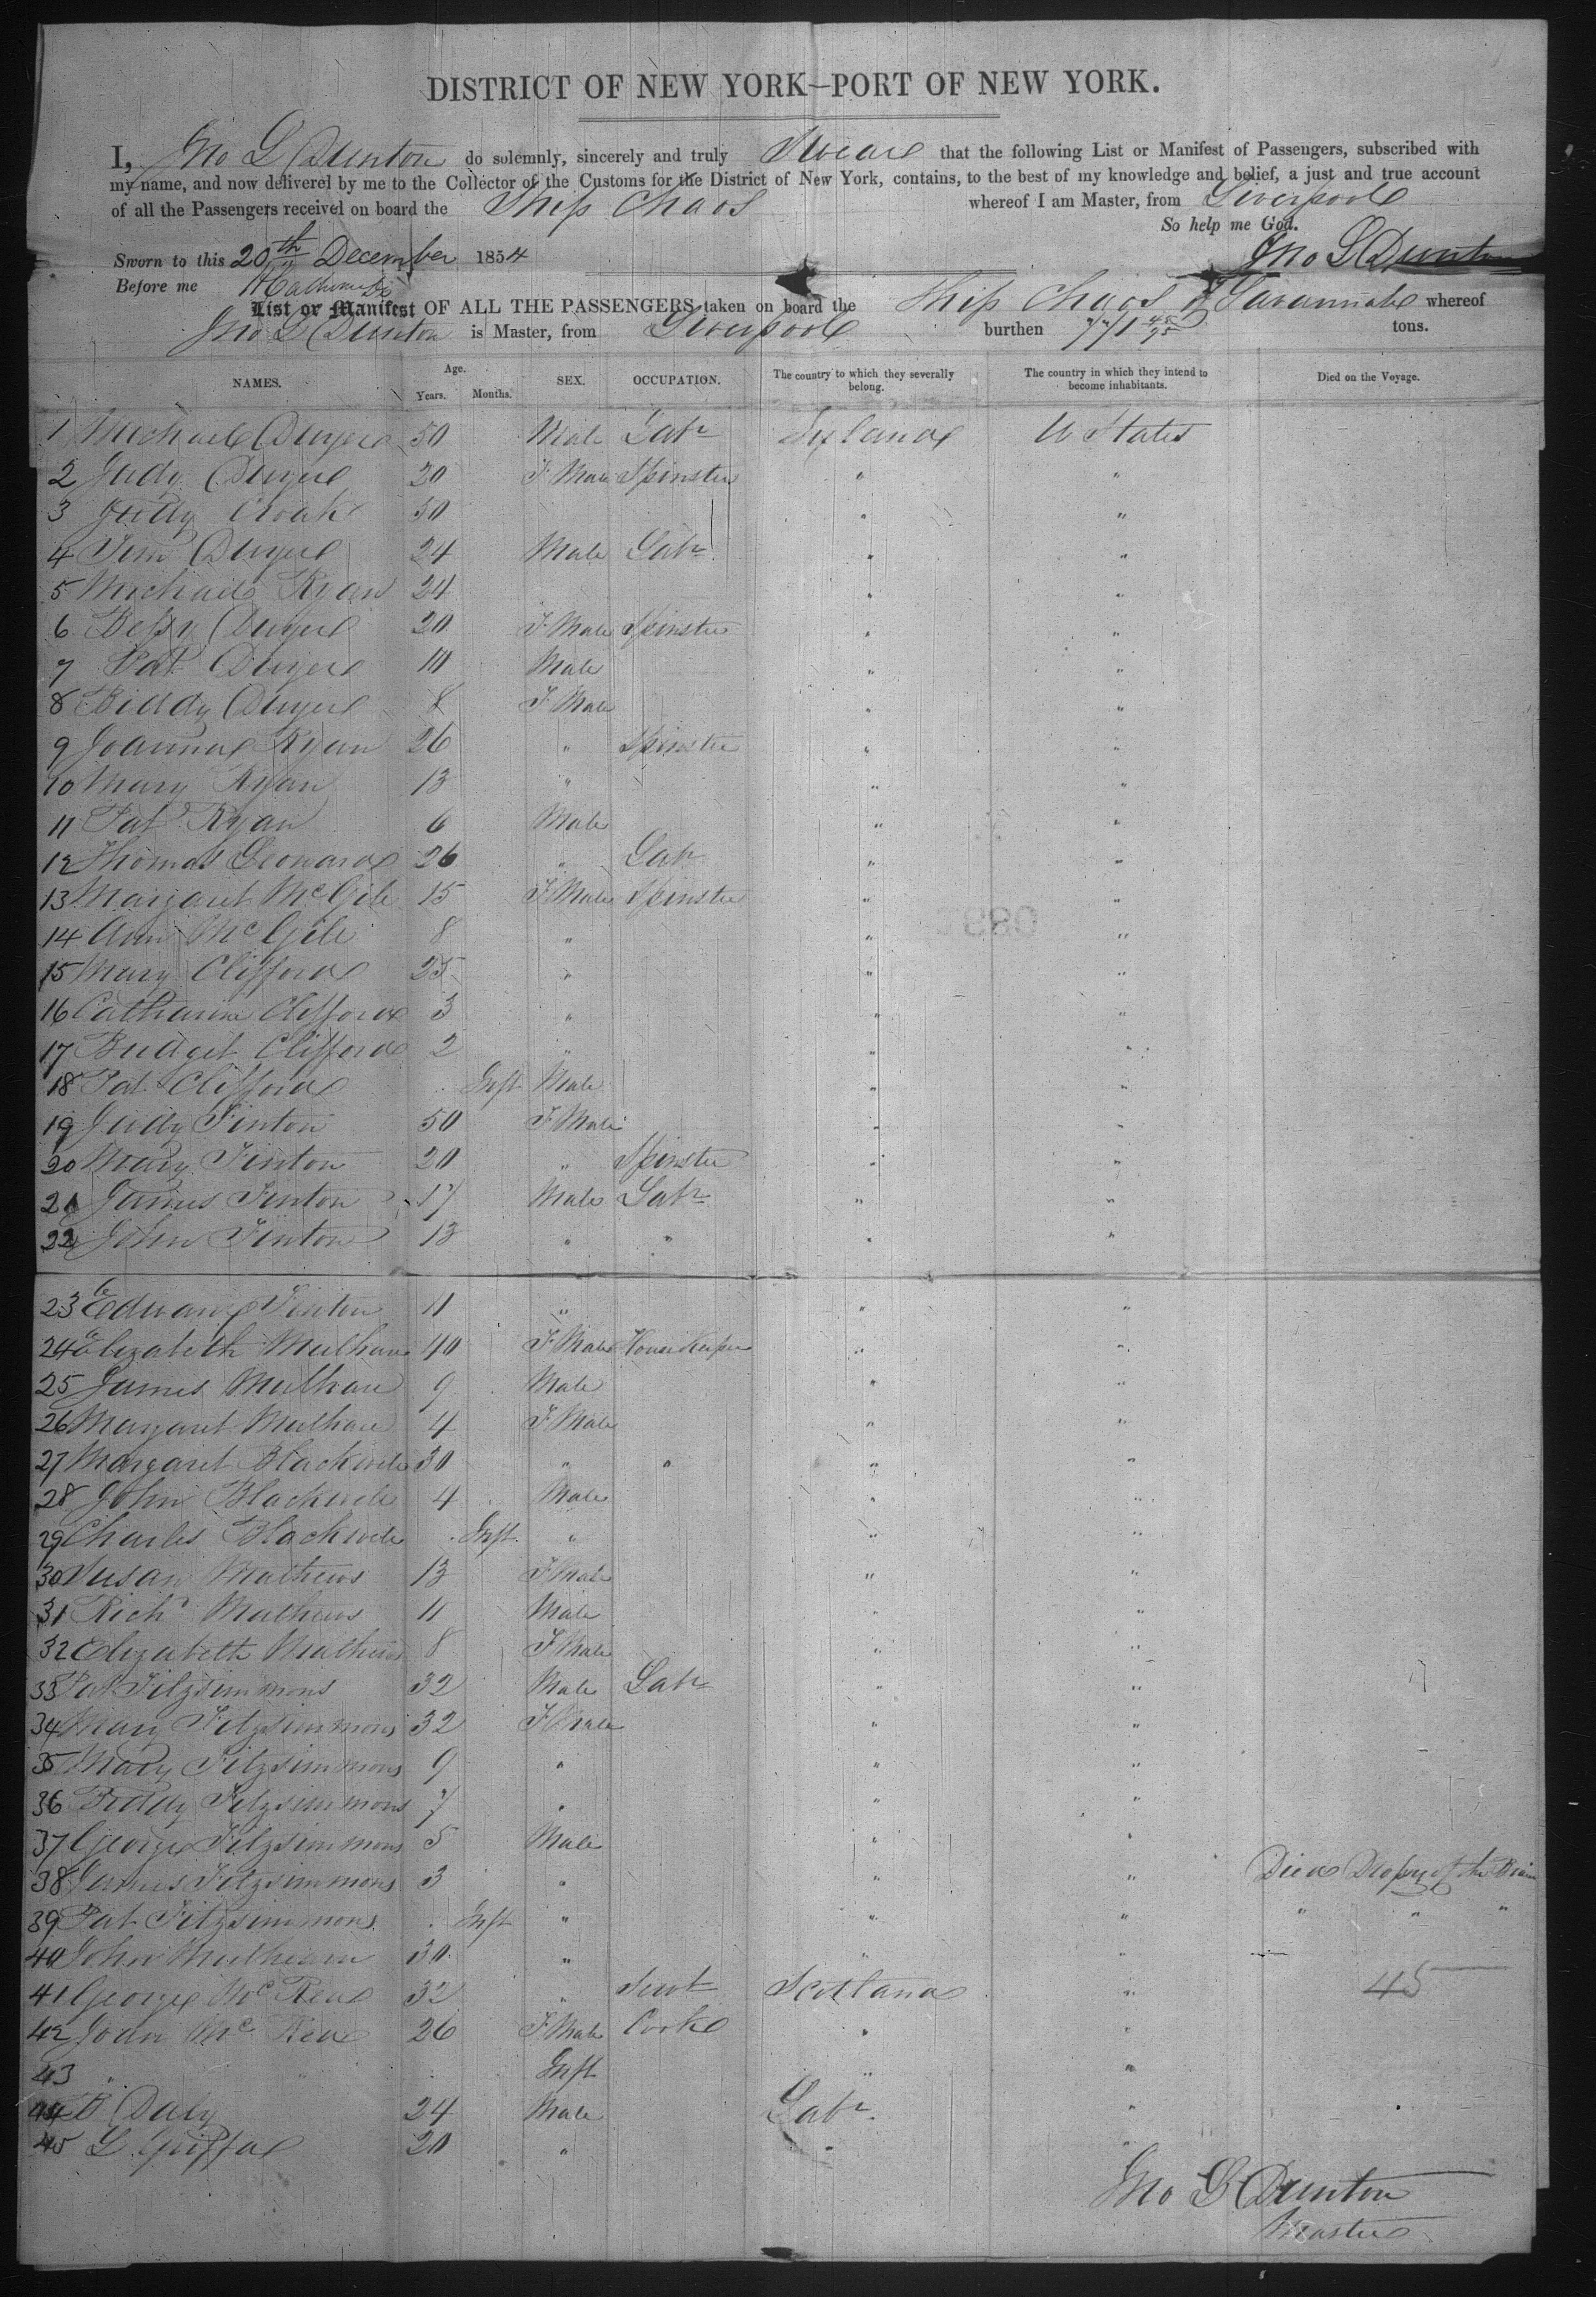 DISTRICT OF NEW YORK—PORT OF NEW YORK.
I, Jno G Dunton do solemnly, sincerely and truly Swear that the following List or Manifest of Passengers, subscribed with
my name, and now delivered by me to the Collector of the Customs for the District of New York, contains, to the best of my knowledge and belief, a just and true account
of all the Passengers received on board the Ship Chaos whereof I am Master, from Liverpool
So help me God.
Sworn to this 20th December 1854 Jno G Dunton
Before me
List or Manifest OF ALL THE PASSENGERS taken on board the Ship Chaos of Savannah whereof
Jno G Dunton is Master, from Liverpool burthen 771 45/95 tons.
NAMES. Age. Years. Months. SEX. OCCUPATION. The country to which they severally belong. The country in which they intend to become inhabitants. Died on the Voyage.
1 Michael Dwyer 50 Male Labr Ireland U States
2 Judy Dwyer 20 F Male Spinster " "
3 Judy Croak 50 " "
4 Tim Dwyer 24 Male Labr " "
5 Michael Ryan 24 " "
6 Bessy Dwyer 20 F Male Spinster " "
7 Pat Dwyer 10 Male " "
8 Biddy Dwyer 8 F Male " "
9 Joanna Ryan 26 " Spinster " "
10 Mary Ryan 13 " " "
11 Pat Ryan 6 Male " "
12 Thomas Leonard 26 " Labr " "
13 Margaret McGill 15 F Male Spinster " "
14 Ann McGill 8 " " "
15 Mary Clifford 25 " " "
16 Catharine Clifford 3 " " "
17 Bridget Clifford 2 " " "
18 Pat Clifford Inft Male " "
19 Judy Finton 50 F Male " "
20 Mary Finton 20 " Spinster " "
21 James Finton 17 Male Labr " "
22 John Finton 13 " " " "
23 Edward Finton 11 " " "
24 Elizabeth Mulhare 40 F Male House Keeper " "
25 James Mulhare 9 Male " "
26 Margaret Mulhare 4 F Male " "
27 Margaret Blackwell 30 " " " "
28 John Blackwell 4 Male " "
29 Charles Blackwell Inft " " "
30 Susan Mathews 13 F Male " "
31 Richd Mathews 11 Male " "
32 Elizabeth Mathews 8 F Male " "
33 Pat Fitzsimmons 32 Male Labr " "
34 Mary Fitzsimmons 32 F Male " "
35 Mary Fitzsimmons 9 " " "
36 Biddy Fitzsimmons 7 " " "
37 George Fitzsimmons 5 Male " "
38 James Fitzsimmons 3 " " " Died Dropsy of the Brain
39 Pat Fitzsimmons Inft " " " " " "
40 John Mulhearn 30 " " "
41 George McRea 32 " Servt Scotland " 45
42 Joan McRea 26 F Male Cook " "
43 " " Inft " "
44 B Daly 24 Male Labr "
45 L Griffa 20 " " "
Jno G Dunton
Master